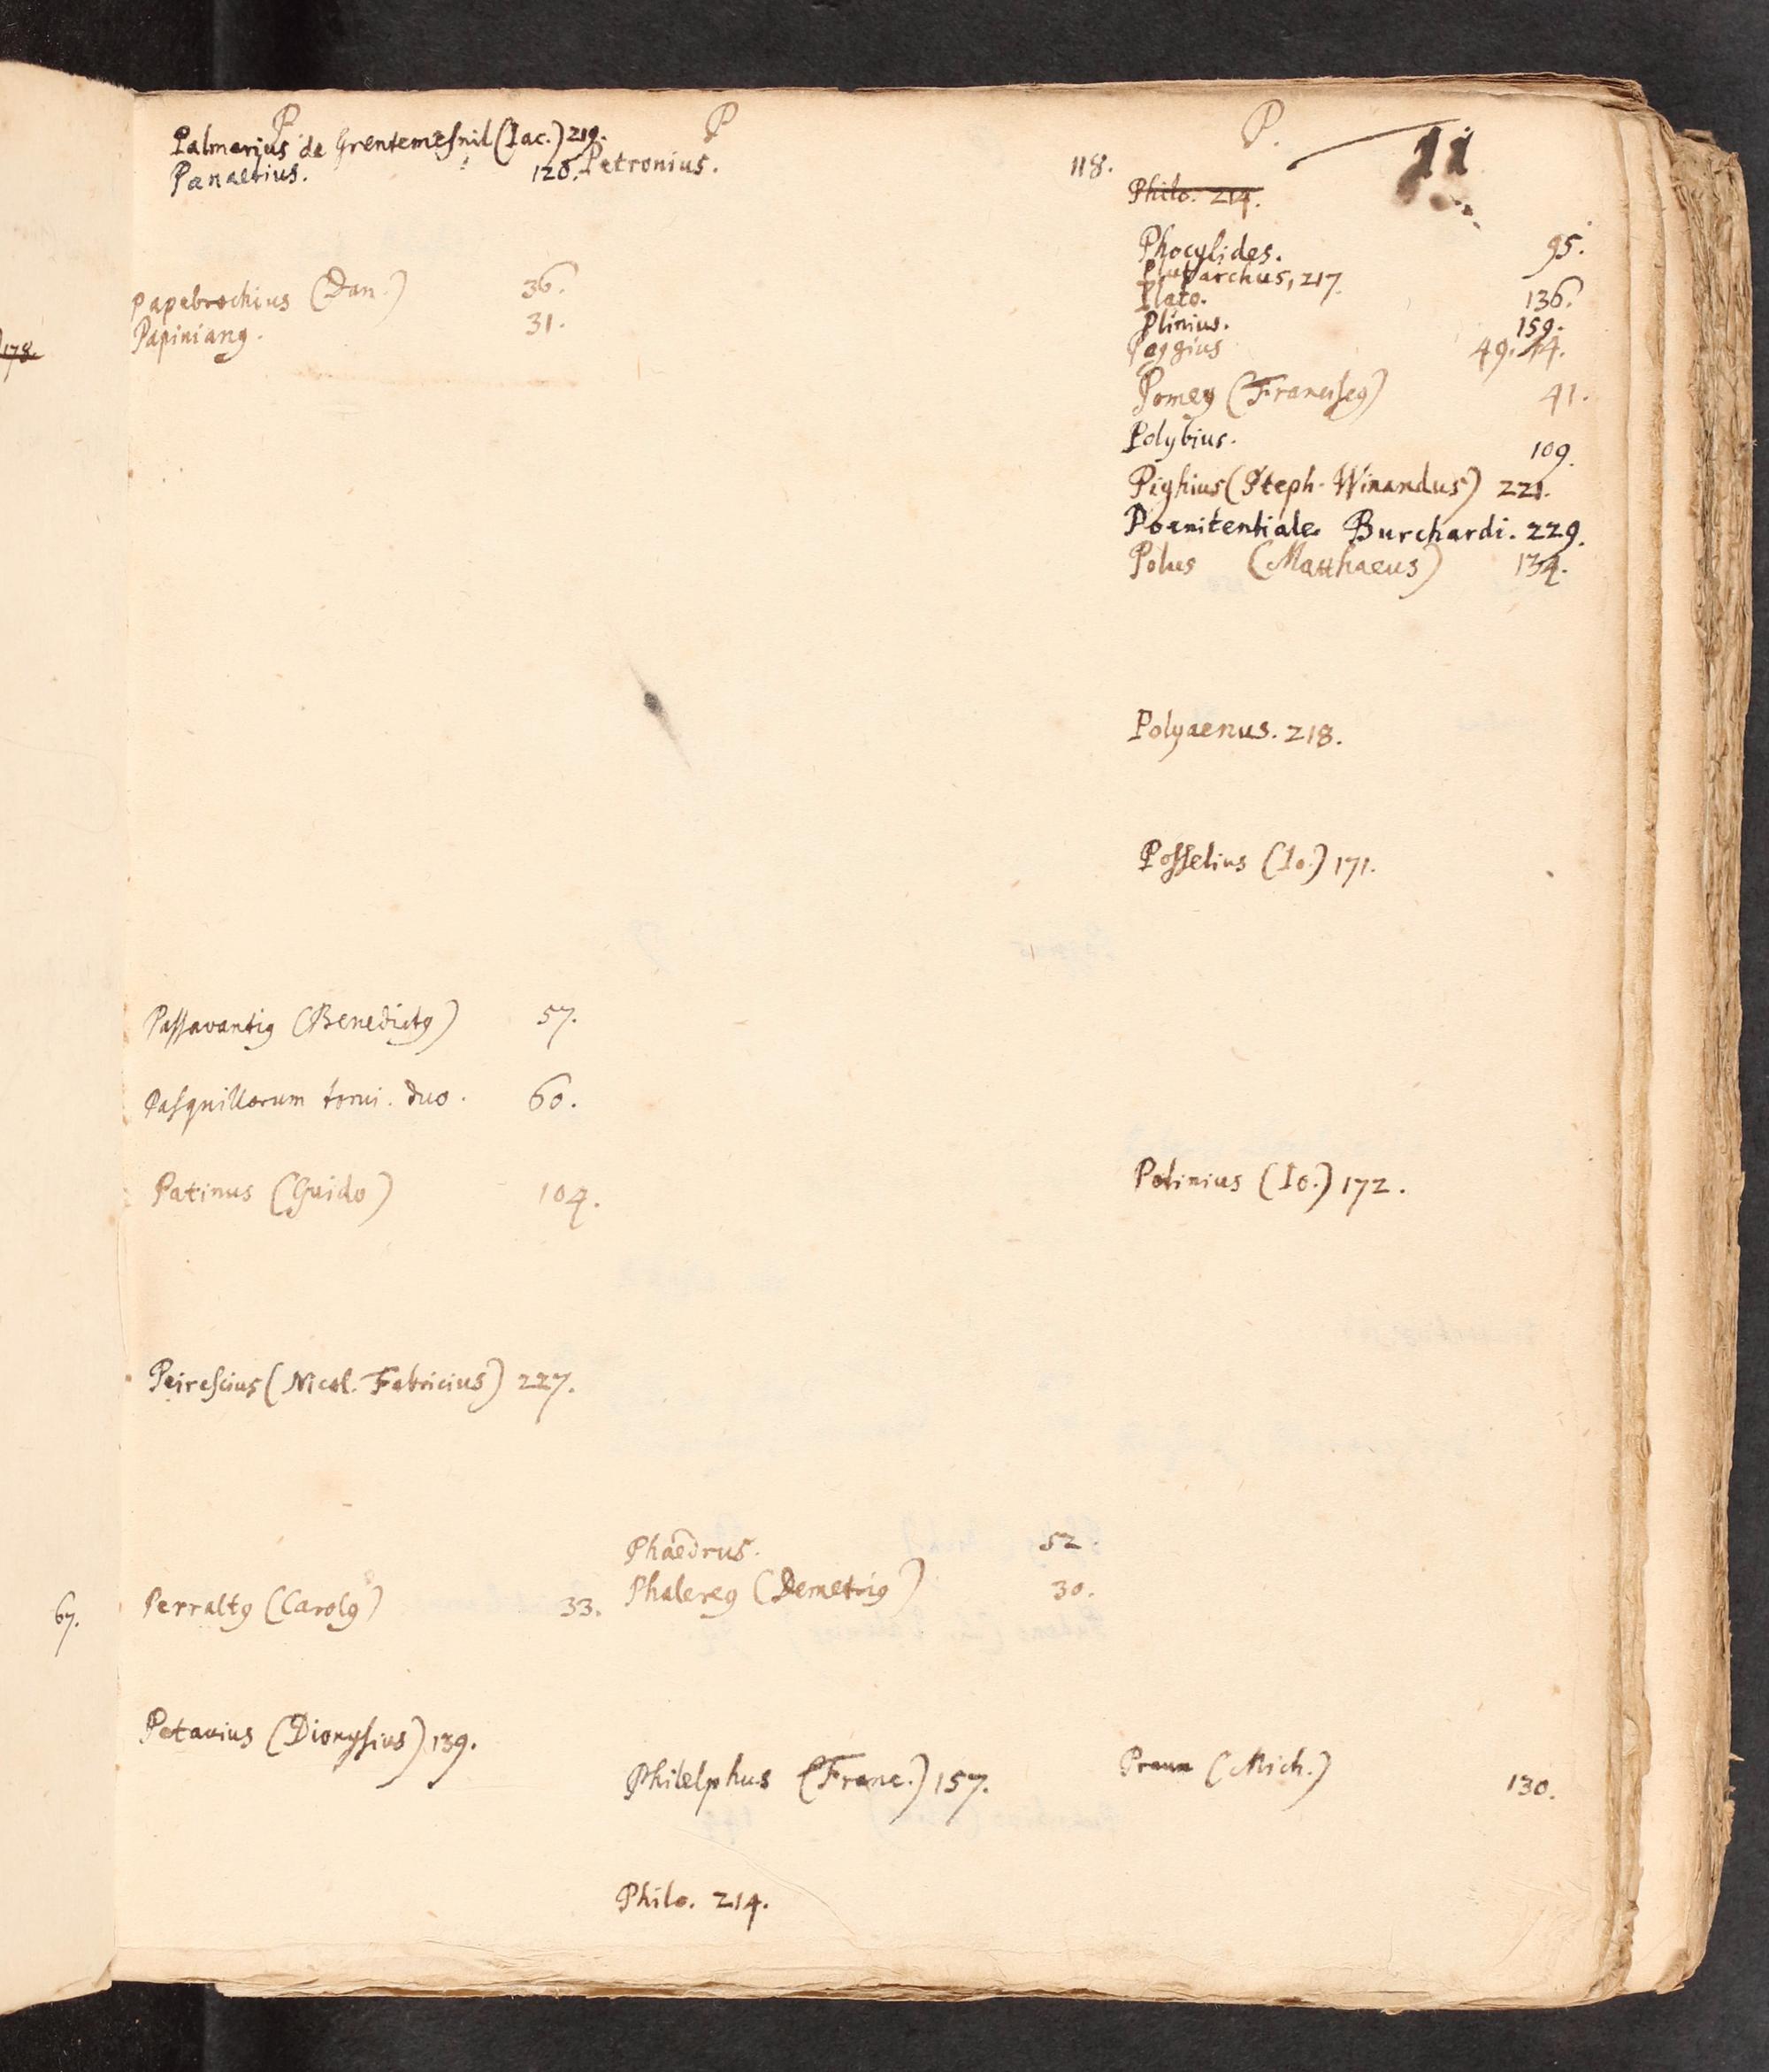 178.
67.
P
Palmerius de Grentemesnil (Iac.) 219.
Panaetius. 120.
Papebrochius (Dan.) 36.
Papinianꝰ. 31.
Passavantiꝰ (Benedictꝰ) 57.
Pasquillorum tomi duo. 60.
Patinus (Guido) 104.
Peirescius (Nicol. Fabricius) 227.
Perraltꝰ (Carolꝰ) 33.
Petavius (Dionysius) 139.
P
Petronius. 118.
Phaedrus. 52.
Phalereꝰ (Demetriꝰ) 30.
Philelphus (Franc.) 157.
Philo. 214.
P.
11
Philo. 214.
Phocylides. 95.
Plutarchus, 217.
Plato. 136.
Plinius. 159.
Poggius 49. 44.
Pomey (Franciscꝰ) 41.
Polybius. 109.
Pighius (Steph. Winandus) 221.
Poenitentiale Burchardi. 229.
Polus (Matthaeus) 134.
Polyaenus. 218.
Posselius (Io.) 171.
(Io.) 172.
Praun (Mich.) 130.